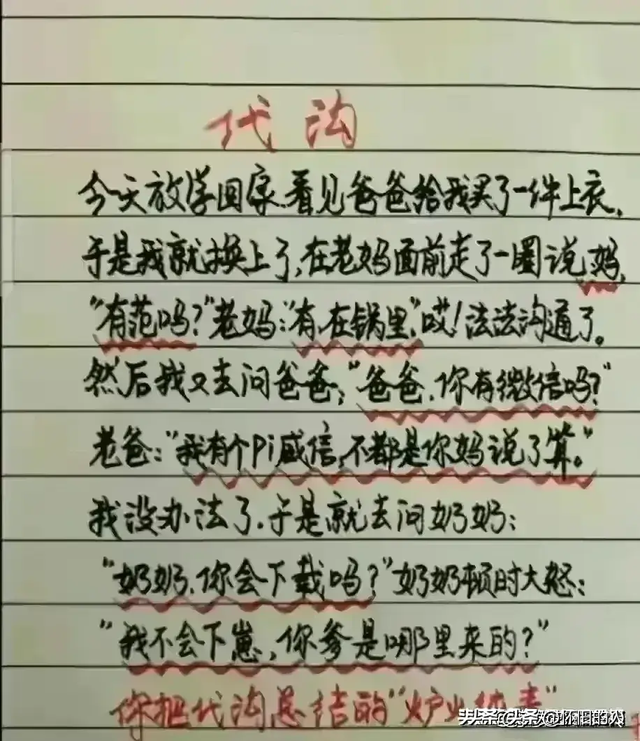 代沟
今天放学回家,看见爸爸给我买了一件上衣,
于是我就换上了,在老妈面前走了一圈说妈,
“有范吗?”老妈:“有,在锅里”,哎!法法沟通了。
然后我又去问爸爸:“爸爸,你有微信吗?”
老爸:“我有个Pi威信,不都是你妈说了算。”
我没办法了,于是就去问奶奶:
“奶奶,你会下载吗?”奶奶顿时大怒:
“我不会下崽,你爹是哪里来的?”
你把代沟总结的“炉火纯青”
头条